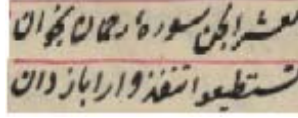 معشر الجن سورهٔ رحمان بخوان
تستطیعوا تنفذوا را باز دان